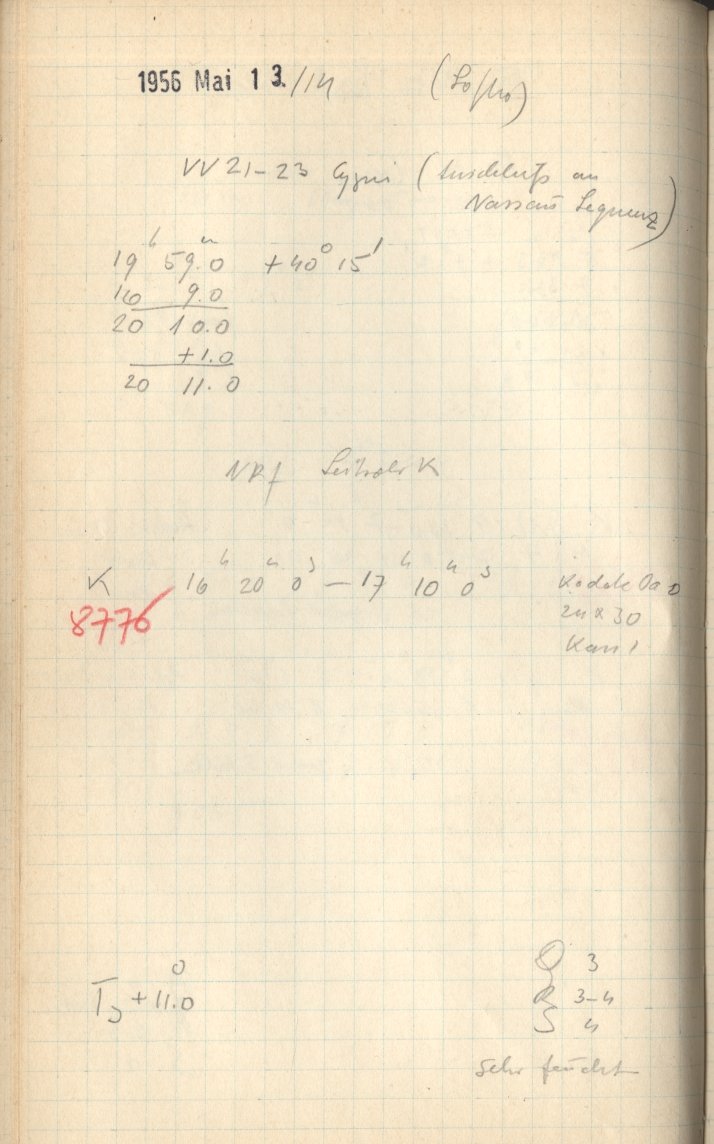 1956 Mai 13./14
VV 21-23 Cygni (Anschluß an
Nassau Sequenz)
19ʰ 59.ᵐ0 +40° 15'
16 9.0
20 10.0
+1.0
20 11.0
NRf K
K 16ʰ 20ᵐ 0ˢ — 17ʰ 10ᵐ 0ˢ Kodak Oa O
8776 24 x 30
Kass 1
0 3
T +11.0 R 3-4
S 4
sehr feucht